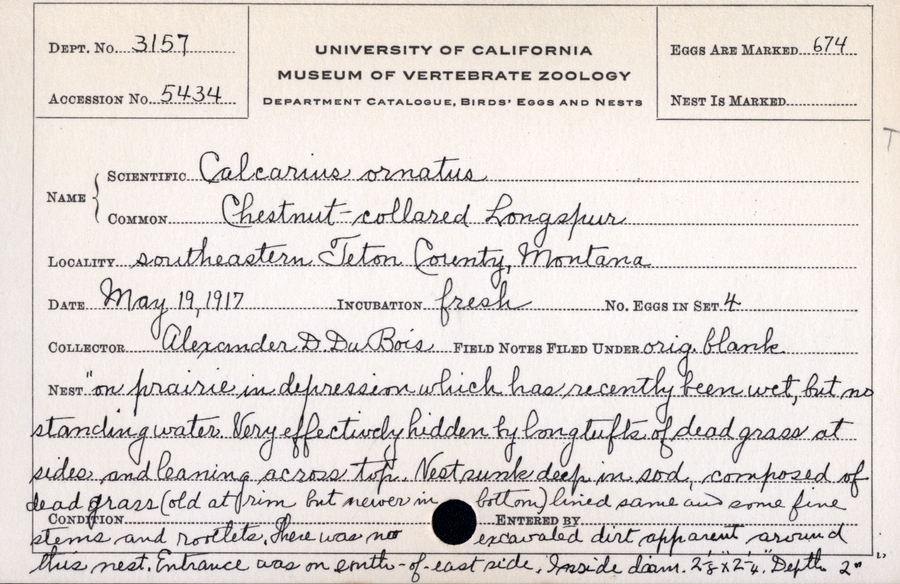 DEPT. No. 3157
ACCESSION No. 5434
UNIVERSITY OF CALIFORNIA
MUSEUM OF VERTEBRATE ZOOLOGY
DEPARTMENT CATALOGUE, BIRDS' EGGS AND NESTS
EGGS ARE MARKED 674
NEST IS MARKED
T
NAME
SCIENTIFIC Calcarius ornatus
COMMON Chestnut-collared Longspur
LOCALITY southeastern Teton County, Montana
DATE May 19, 1917 INCUBATION fresh No. EGGS IN SET 4
COLLECTOR Alexander D. Du Bois FIELD NOTES FILED UNDER orig. blank
NEST "on prairie in depression which has recently been wet, but no
standing water. Very effectively hidden by long tufts of dead grass at
sides and leaning across top. Nest sunk deep in sod, composed of
dead grass (old at rim but newer in bottom) lined same and some fine
CONDITION ENTERED BY
stems and rootlets. There was no excavated dirt apparent around
this nest. Entrance was on south-of-east side. Inside diam. 2⅛" x 2¼". Depth 2"